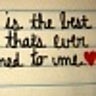 is the best
thats ever
ned to me.